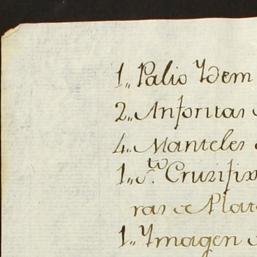 1,, Palio Ydem
2,, Anforitas
4,, Manteles
1,, S.to Cruzifix
ras de Plat
1,, Ymagen